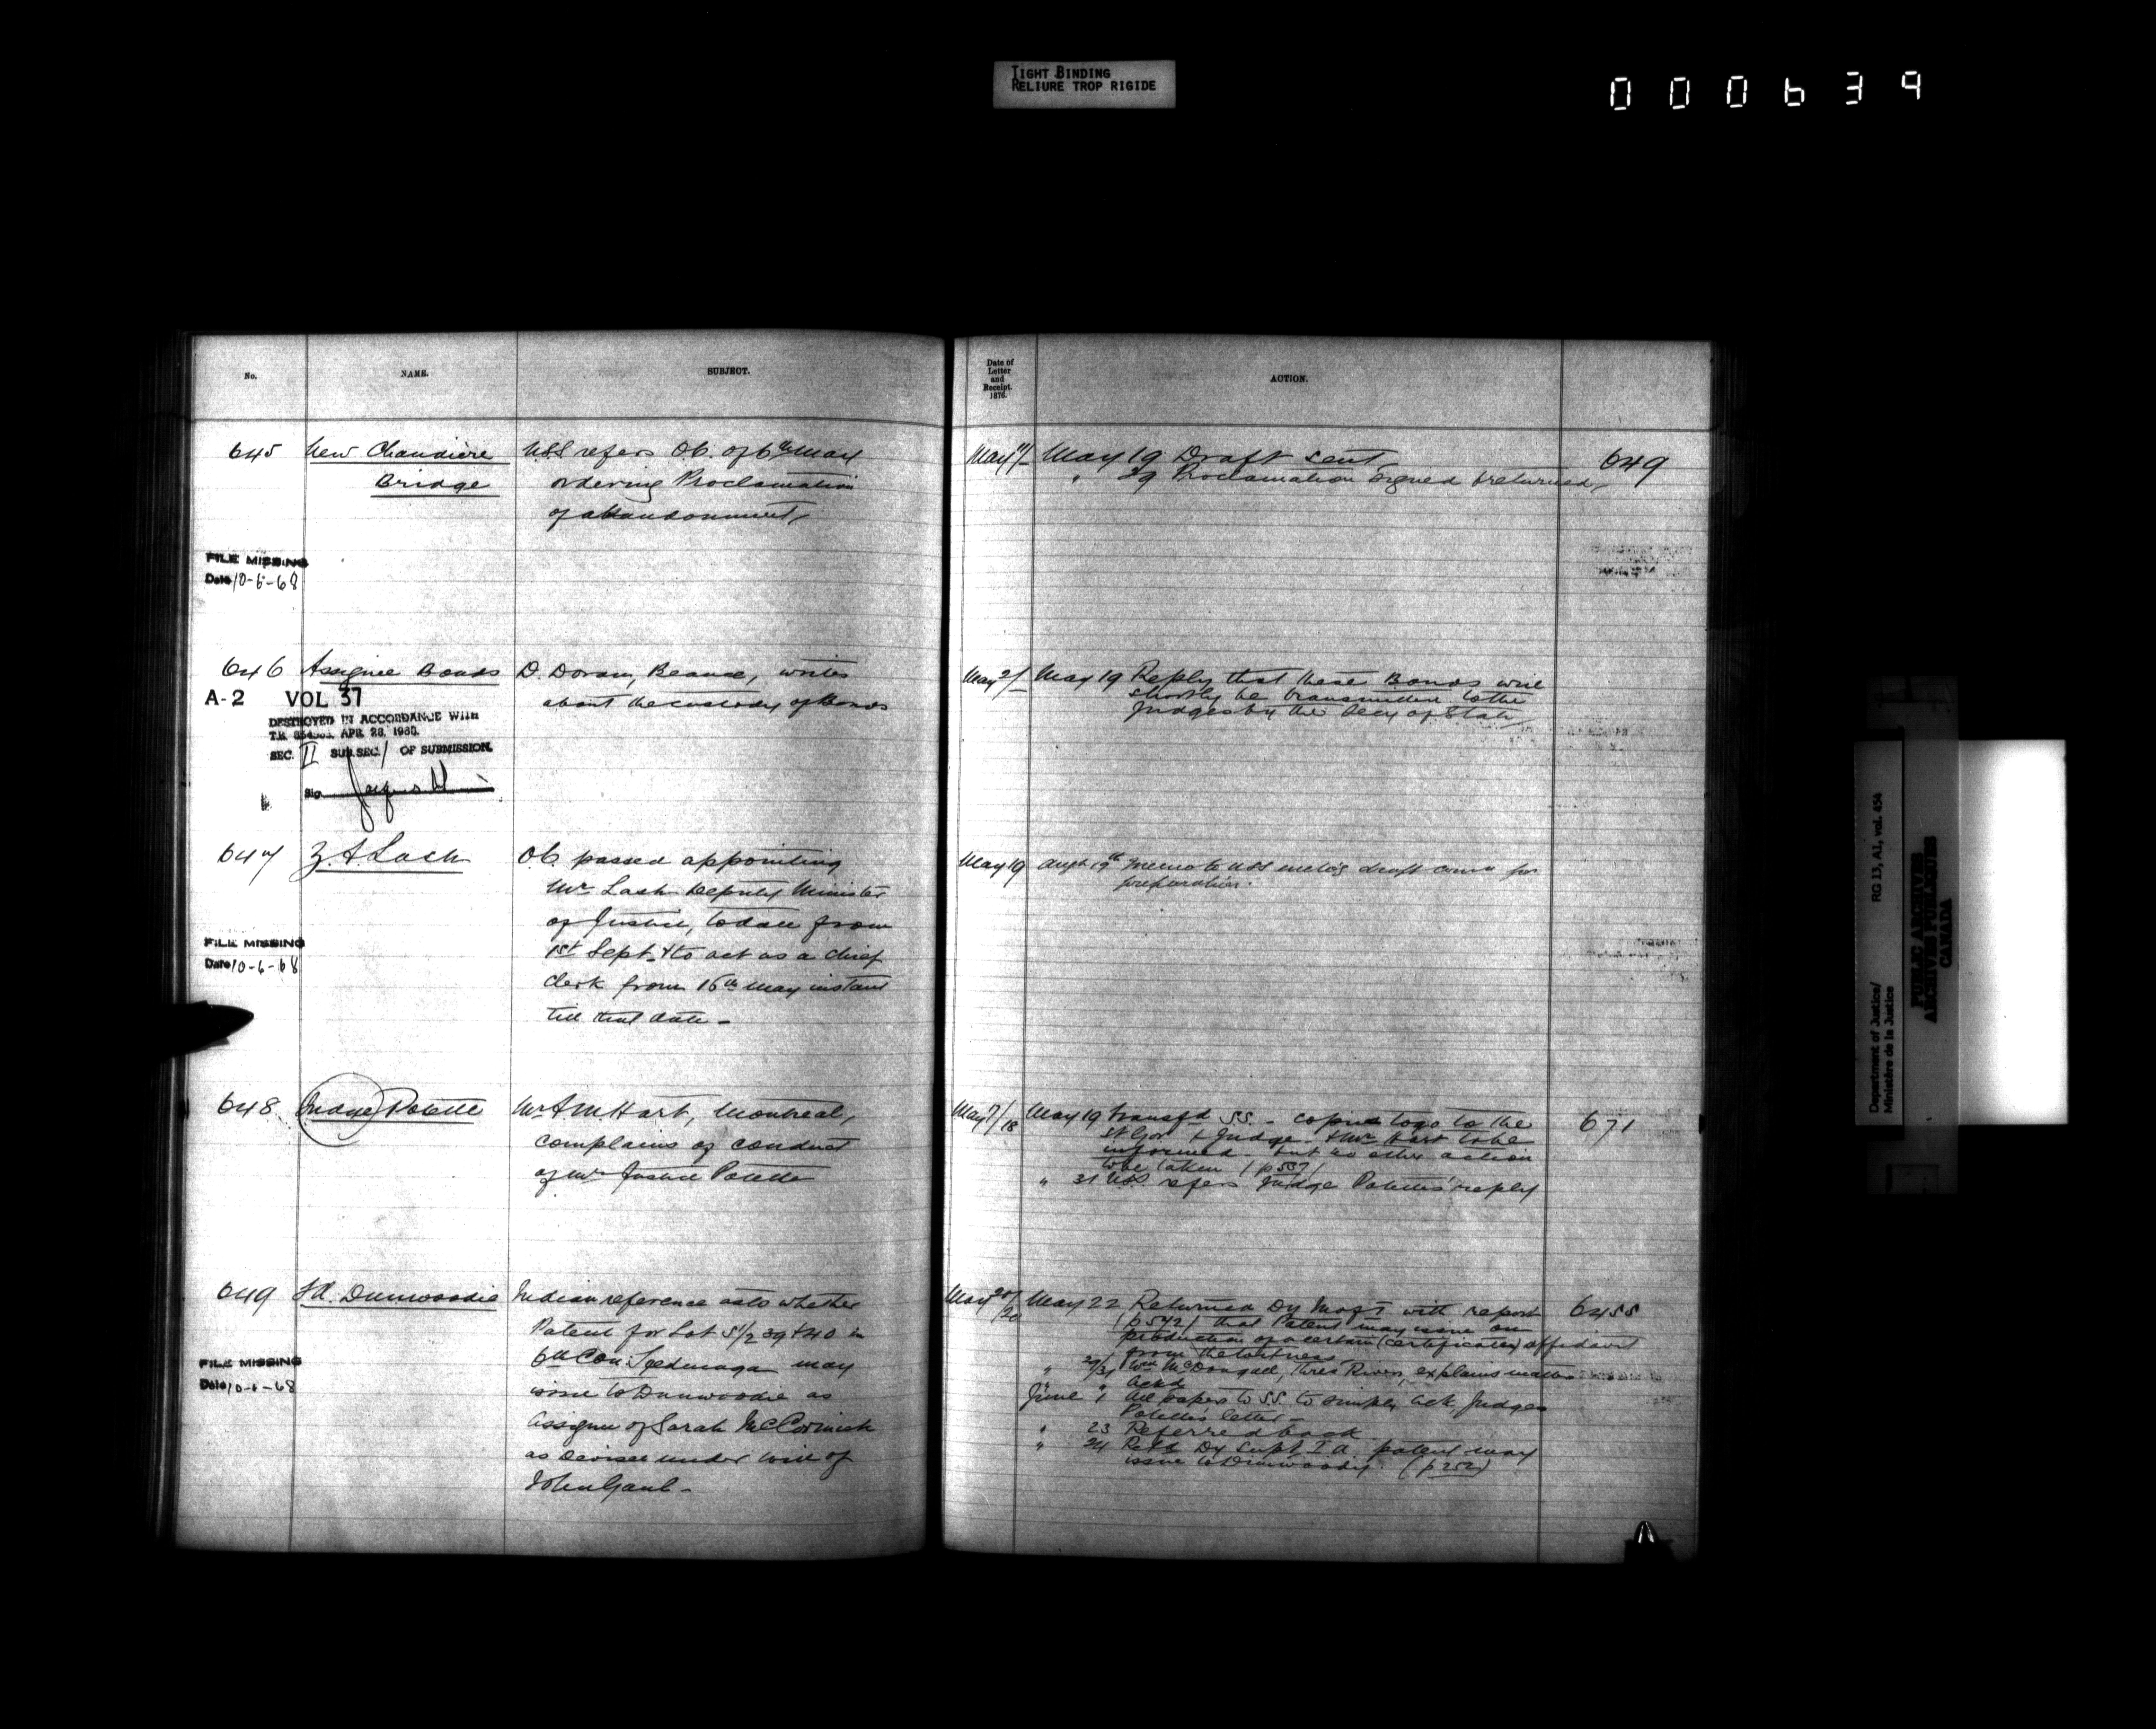 TIGHT BINDING
RELIURE TROP RIGIDE
000639
No.
NAME.
SUBJECT.
Date of
Letter
and
Receipt.
1876.
ACTION.
645 New Chaudiere
Bridge
USS refers O.C. of 6th May
ordering Proclamation
of abandonment
May May 19 Draft sent
" 29 Proclamation signed & returned
649
FILE MISSING
Date 10-6-68
646 Assignee Bonds
D. Doran, Beauce, writes
about the custody of Bonds
May 2/ May 19 Reply that these Bonds will
shortly be transmitted to the
Judges by the Secy of State
A-2 VOL 37
DESTROYED IN ACCORDANCE WITH
T.B. APR 28, 1960.
SEC. II SUB.SEC. 1 OF SUBMISSION.
Sig.
647 Z. A. Lash
O.C. passed appointing
Mr Lash Deputy Minister
of Justice, to date from
1st Sept. & to act as a chief
clerk from 16th May instant
till that date -
May 19 Augt 19th Memo to USS draft for
preparation.
FILE MISSING
Date 10-6-68
648 Judge Polette
Mr A. M. Hart, Montreal,
complains of conduct
of Mr Justice Polette
May 7/18 May 19 transfd SS. - copies to go to the
Lt Gov & Judge - & Mr Hart to be
informed - but no other action
to be taken (p 537)
" 31 USS. refers Judge Polette's reply
671
649 Dunwoodie
Indian reference as to whether
Patent for Lot S1/2 39 & 40 in
6th Con: may
issue to Dunwoodie as
assignee of Sarah McCormick
as Devisee under will of
John Gaul -
May 20/20 May 22 Returned Dy MofI with report
(p 542) that Patent may issue on
production of a certain (certificate) affidavit
from the witness
" 29/31 Wm McDougall, Three Rivers, explains matter
" " Ackd
June 1 All papers to SS. to simply ack. Judge
Polette's letter -
" 23 Referred back
" 24 Retd Dy Supt I A patent may
issue to Dunwoody. (p 252)
6455
FILE MISSING
Date 10-6-68
Department of Justice/
Ministère de la Justice
RG 13, A1, vol. 454
PUBLIC ARCHIVES
ARCHIVES PUBLIQUES
CANADA